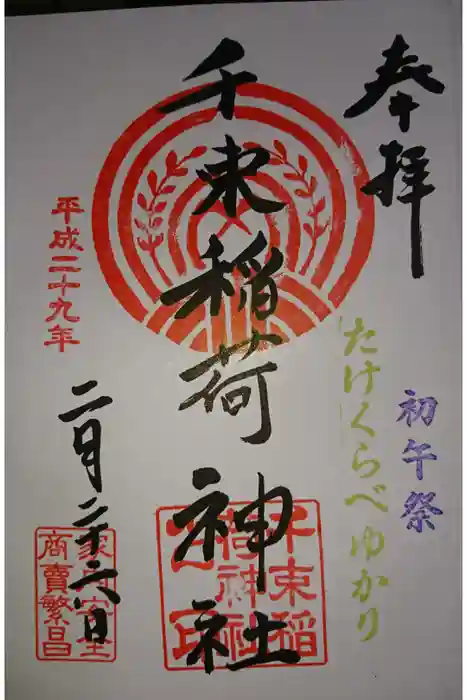 奉拝
初午祭
たけくらべゆかり
千束稲荷神社
千束稲荷神社
平成二十九年
二月二十六日
家内安全
商賣繁昌